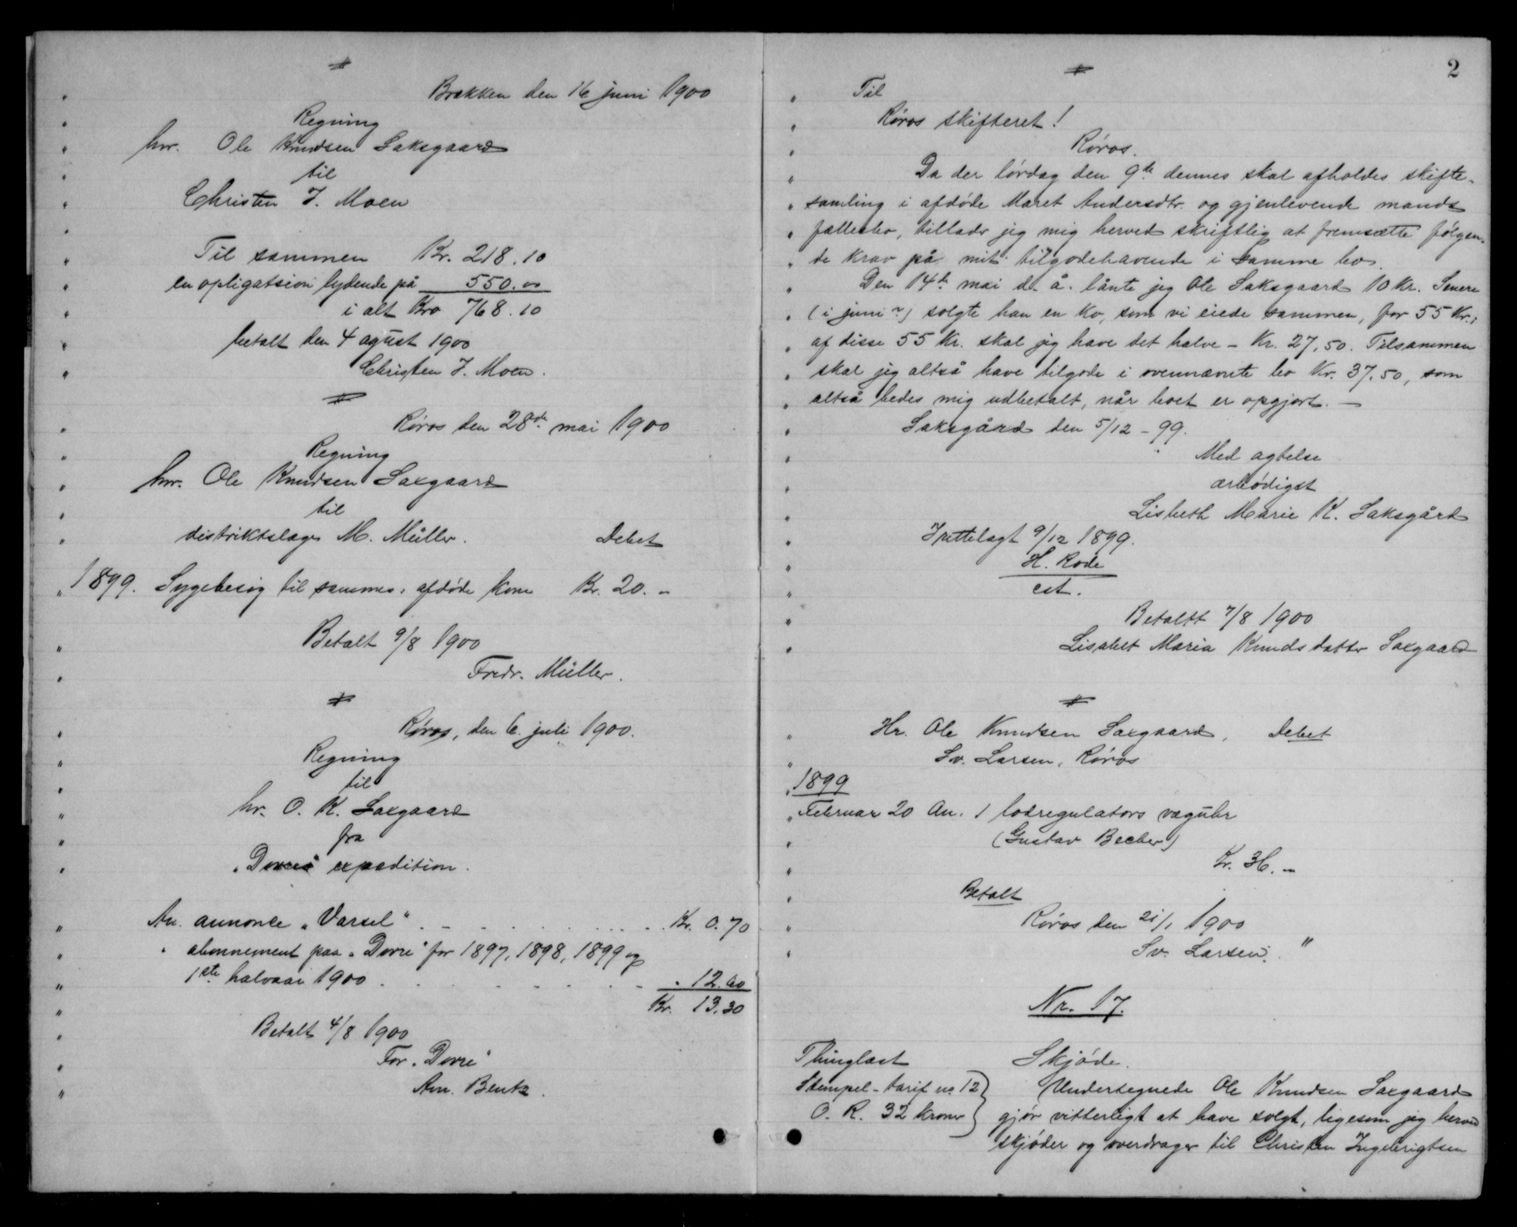 Brækken den 16 juni 1900
Regning
hr. Ole Knudsen Saksgaard
til
Christen J. Moen
Til sammen Kr. 218.10
en opligatsion lydende på 550.00
i alt Kro 768.10
betalt den 4 agust 1900
Christen J. Moen.
Røros den 28de mai 1900
Regning
hr. Ole Knudsen Saxgaard
til
distriktslæge M. Müller. Debet
1899. Sygebesøg til sammes afdøde kone Kr. 20.-
Betalt 9/8 1900
Fredr. Müller.
Røros, den 6. juli 1900.
Regning
til
hr. O. K. Saxgaard
fra
"Dovres" expedition.
An. annonce "Varsel" . . . . Kr. 0.70
" abonnement paa "Dovre" for 1897, 1898, 1899 og
1ste halvaar 1900 . . . . " 12.60
Kr. 13.30
Betalt 4/8 1900
For "Dovre"
Am. Bentz.
2
Til
Røros skifteret!
Røros.
Da der lørdag den 9de dennes skal afholdes skifte-
samling i afdøde Maret Andersdtr. og gjenlevende mands
fællesbo, tillader jeg mig herved skriftlig at fremsætte følgen-
de krav på mit tilgodehavende i samme bo.
Den 14de mai d. å. lånte jeg Ole Saksgaard 10 kr. Senere
(i juni?) solgte han en ko, som vi eiede sammen, for 55 Kr.;
af disse 55 kr. skal jeg have det halve - Kr. 27,50. Tilsammen
skal jeg altså have tilgode i ovennævnte bo Kr. 37.50, som
altså bedes mig udbetalt, når boet er opgjort. -
Saksgård den 5/12 - 99.
Med agtelse
ærbødigst
Lisbeth Marie K. Saksgård
Irettelagt 9/12 1899.
H. Rode
cst.
Betalt 7/8 1900
Lisabet Maria Knudsdatter Saxgaard
Hr. Ole Knudsen Saxgaard, Debet
Sv. Larsen, Røros
1899
Februar 20 An. 1 lodregulators væguhr
(Gustav Becker)
Kr. 36.-
Betalt
Røros den 21/1 1900
Sv. Larsen. "
Nr. 17.
Thinglæst Skjøde.
Stempel-tarif no 12 Undertegnede Ole Knudsen Saxgaard
O. R. 32 kroner gjør vitterligt at have solgt, ligesom jeg herved
skjøder og overdrager til Christen Ingebrigtsen